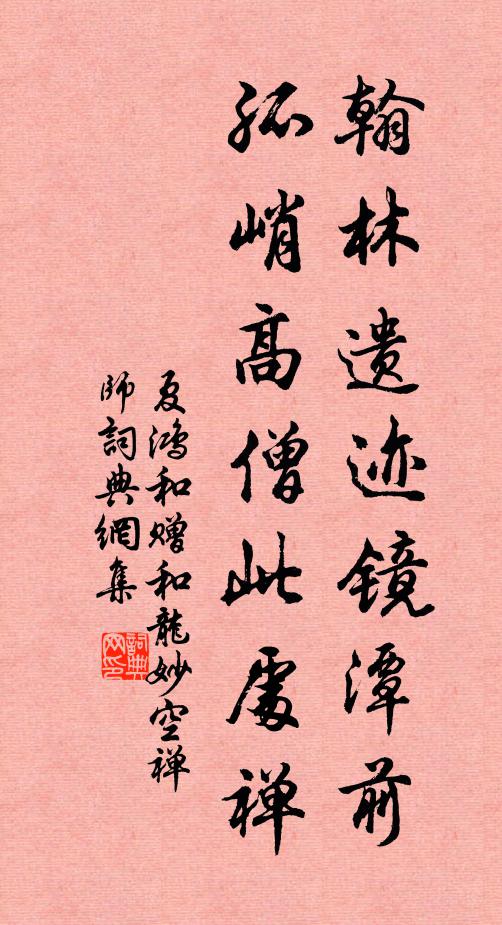 翰林遗迹镜潭前
孤峭高僧此處禅
夏鸿和赠和龍妙空禅
師詞典網集
詞典
网印